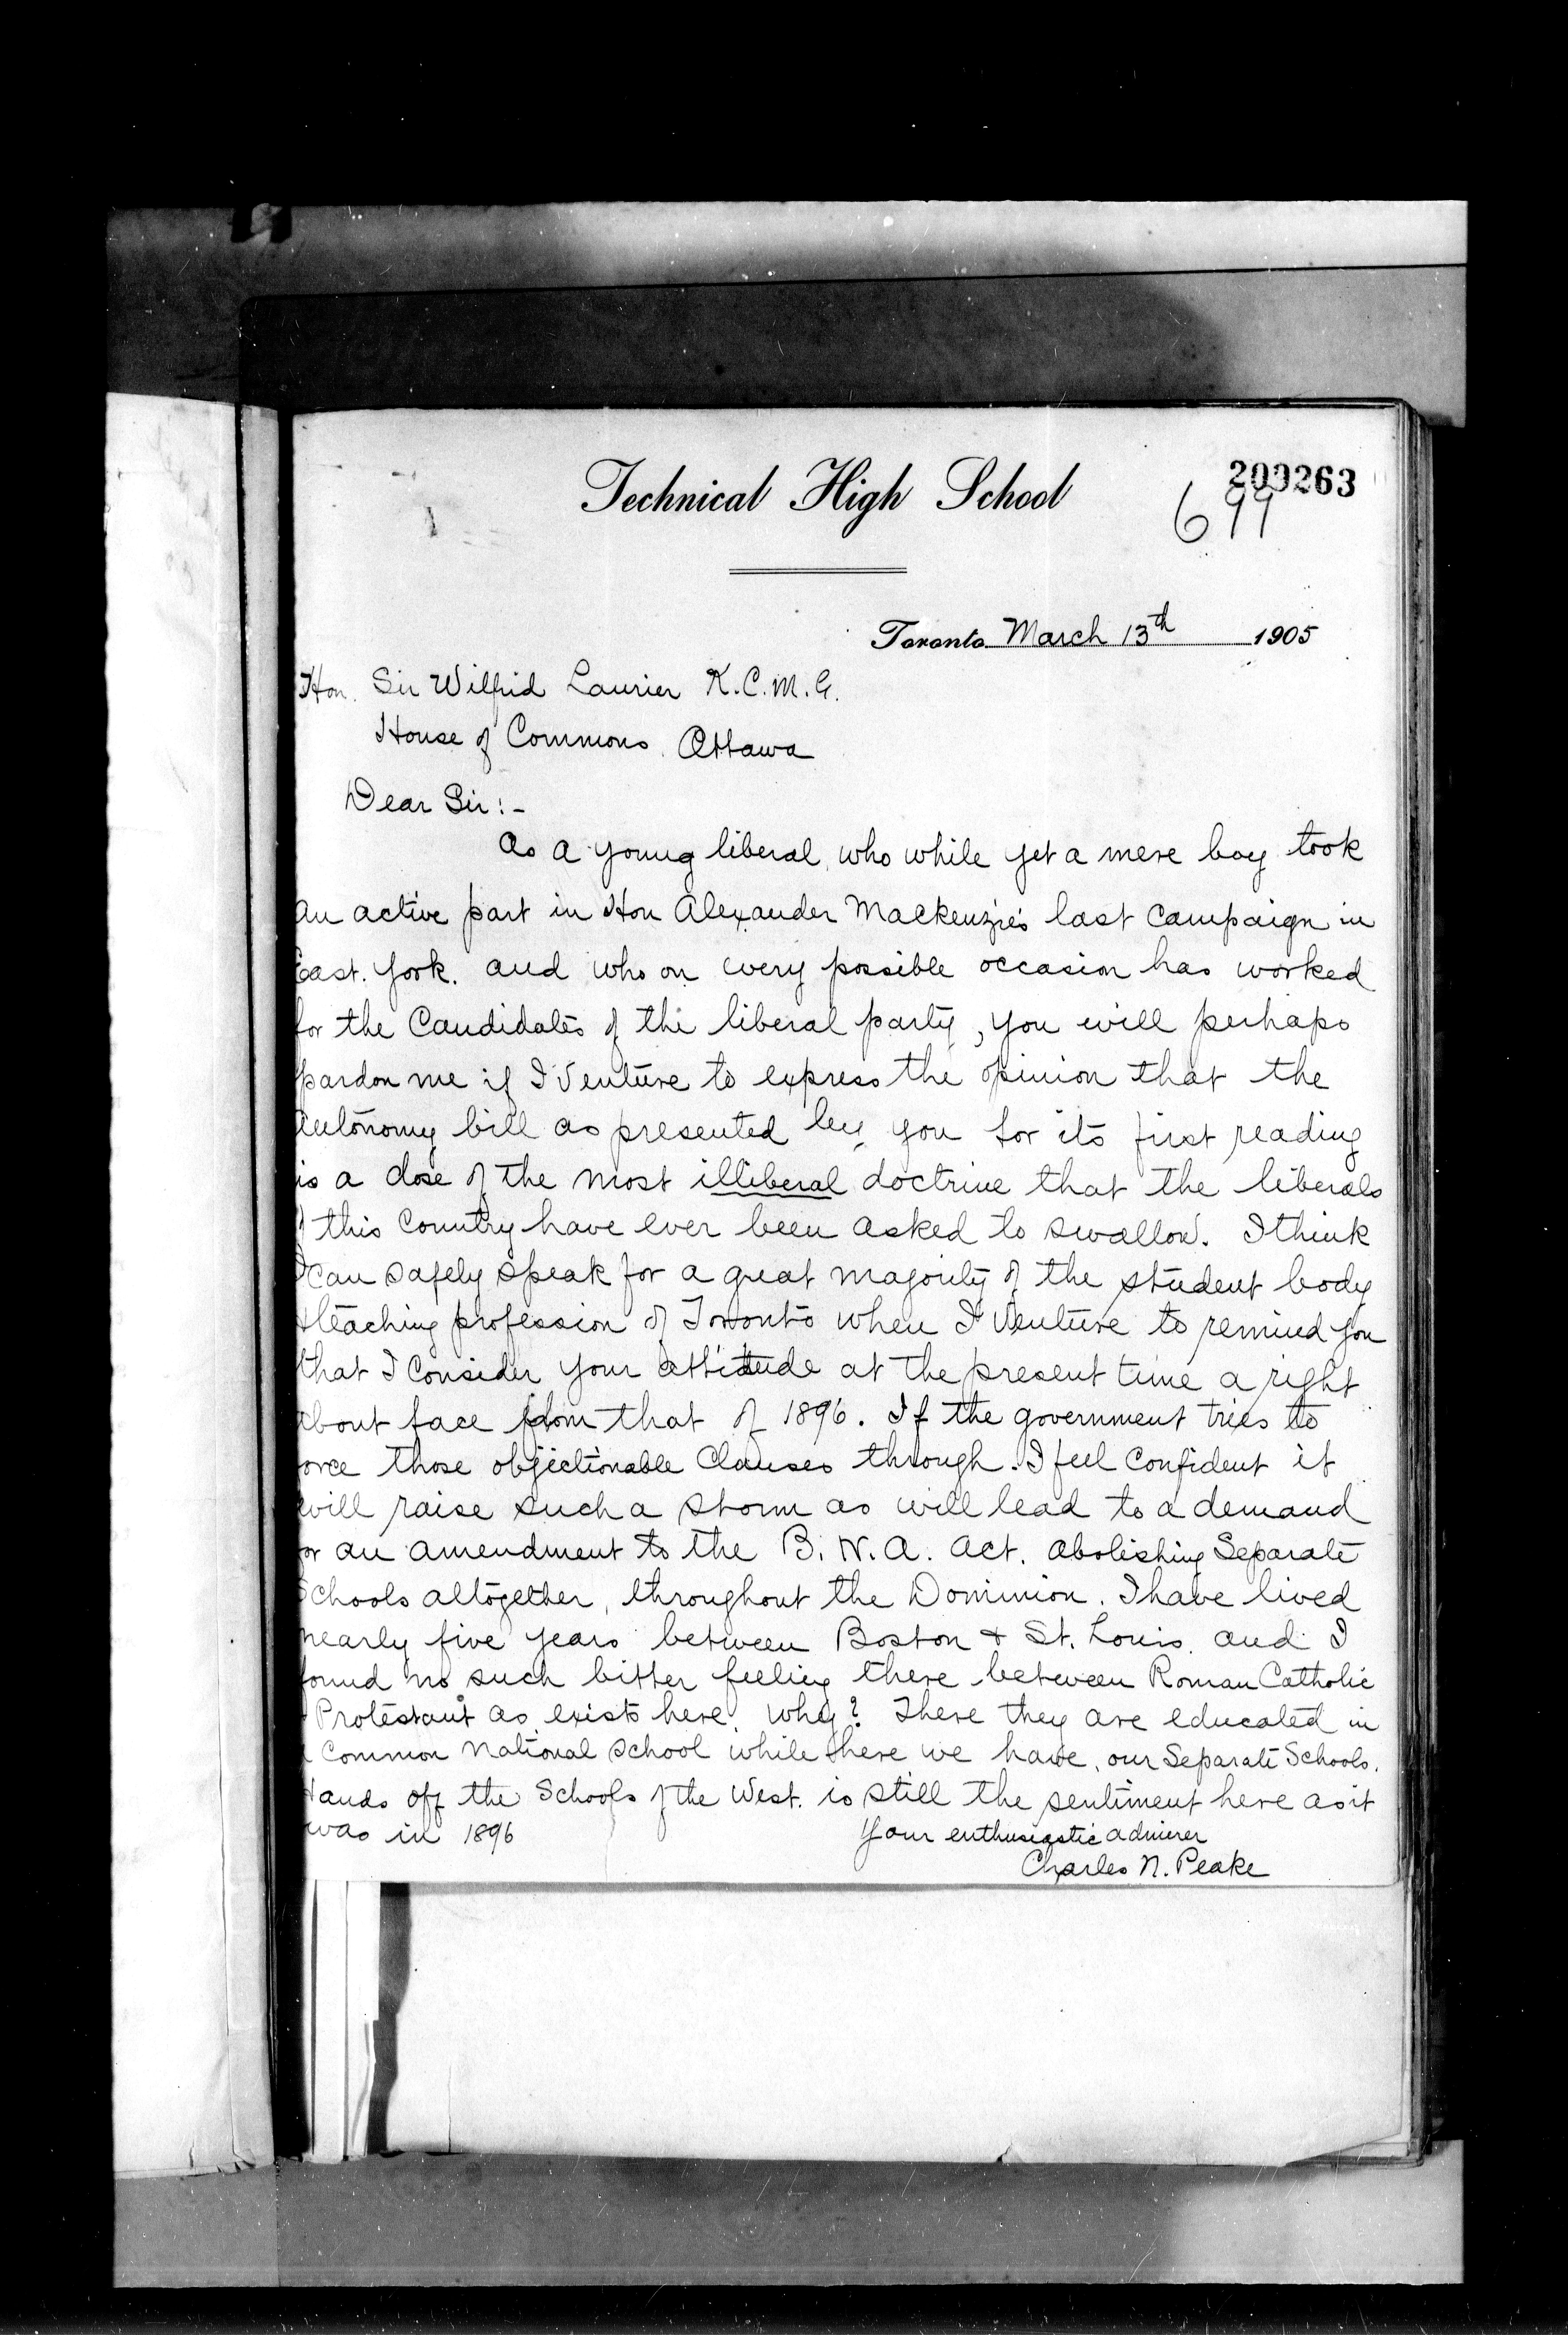 Technical High School
200263
699
Toronto March 13th 1905
Hon. Sir Wilfrid Laurier K.C.M.G.
House of Commons. Ottawa
Dear Sir:-
As a young liberal, who while yet a mere boy took
an active part in Hon Alexander Mackenzie's last campaign in
East. York. and who on every possible occasion has worked
for the Candidates of the liberal party, you will perhaps
pardon me if I venture to express the opinion that the
Autonomy bill as presented by you for its first reading
is a dose of the most illiberal doctrine that the liberals
of this Country have ever been asked to swallow. I think
I can safely speak for a great majority of the student body
+ teaching profession of Toronto when I venture to remind you
that I consider your attitude at the present time a right
about face from that of 1896. If the government tries to
force those objectionable Clauses through. I feel confident it
will raise such a storm as will lead to a demand
for an amendment to the B. N. A. Act. abolishing Separate
Schools altogether, throughout the Dominion. I have lived
nearly five years between Boston + St. Louis. and I
found no such bitter feeling there between Roman Catholic
Protestant as exists here. Why? There they are educated in
a Common National School while here we have, our Separate Schools.
Hands off the Schools of the West. is still the sentiment here as it
was in 1896
Your enthusiastic admirer
Charles N. Peake